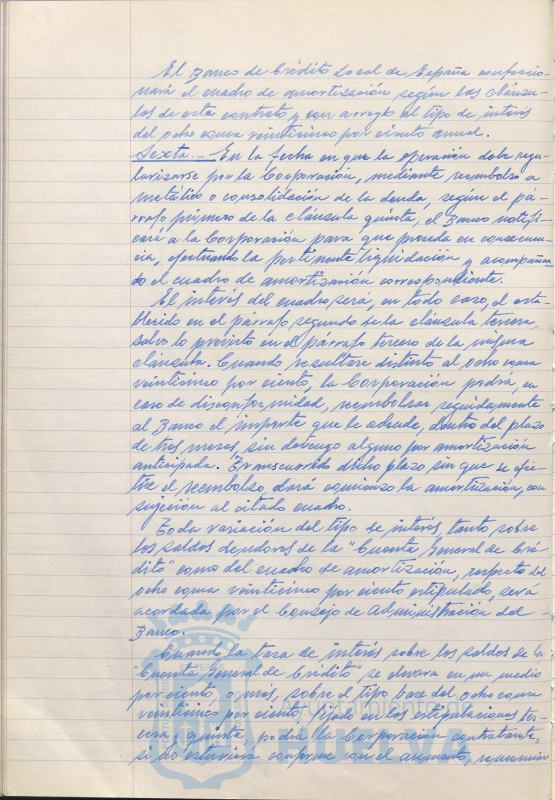 El Banco de Crédito Local de España confeccio-
nará el cuadro de amortización según las cláusu-
las de este contrato y con arreglo al tipo de interés
del ocho coma veinticinco por ciento anual.
Sexta.- En la fecha en que la operación deba regu-
larizarse por la Corporación, mediante reembolso a
metálico o consolidación de la deuda, según el pá-
rrafo primero de la cláusula quinta, el Banco notifi-
cará a la Corporación para que proceda en consecuen-
cia, efectuando la pertinente liquidación y acompañan
do el cuadro de amortización correspondiente.
El interés del cuadro será, en todo caso, el esta-
blecido en el párrafo segundo de la cláusula tercera,
salvo lo previsto en el párrafo tercero de la misma
cláusula. Cuando resultare distinto al ocho coma
veinticinco por ciento, la Corporación podrá, en
caso de disconformidad, reembolsar seguidamente
al Banco el importe que le adeude, dentro del plazo
de tres meses, sin devengo alguno por amortización
anticipada. Transcurrido dicho plazo sin que se efec-
túe el reembolso, dará comienzo la amortización, con
sujeción al citado cuadro.
Toda variación del tipo de interés, tanto sobre
los saldos deudores de la "Cuenta General de Cré-
dito" como del cuadro de amortización, respecto del
ocho coma veinticinco por ciento estipulado, será
acordada por el Consejo de Administración del
Banco.
Cuando la tasa de interés sobre los saldos de la
"Cuenta General de Crédito" se elevara en un medio
por ciento o más, sobre el tipo base del ocho coma
veinticinco por ciento, fijado en las estipulaciones ter-
cera y quinta, podrá la Corporación contratante,
si no estuviera conforme con el aumento, renunciar
Ayuntamiento de
HUELVA